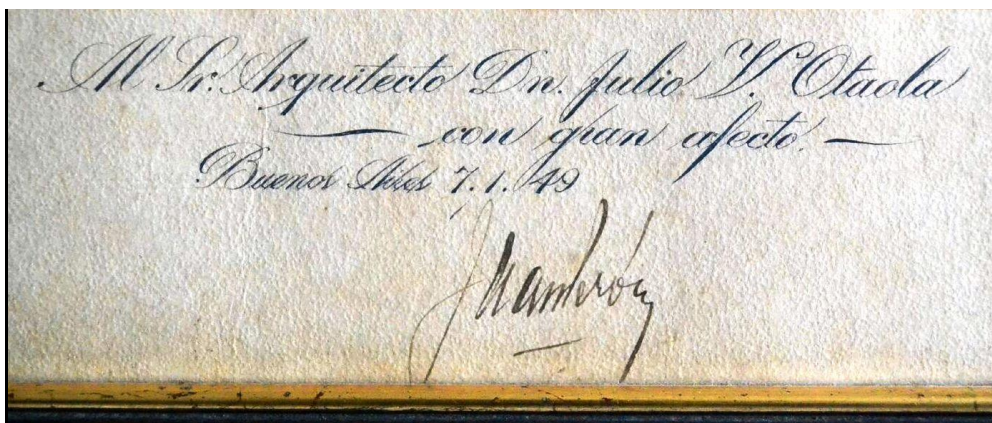 Al Sr. Arquitecto Dn. Julio V. Otaola
con gran afecto.
Buenos Aires 7. 1. 49
Juan Perón